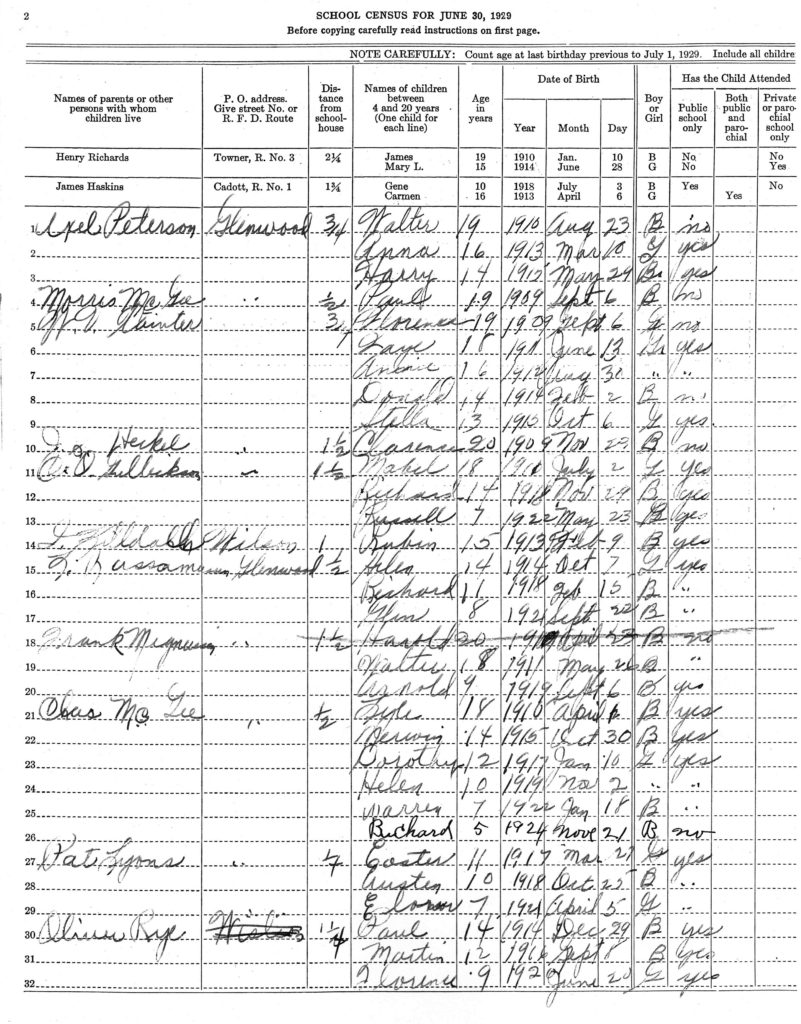 2
SCHOOL CENSUS FOR JUNE 30, 1929
Before copying carefully read instructions on first page.
NOTE CAREFULLY: Count age at last birthday previous to July 1, 1929. Include all childre
Names of parents or other persons with whom children live
P. O. address. Give street No. or R. F. D. Route
Dis- tance from school- house
Names of children between 4 and 20 years (One child for each line)
Age in years
Date of Birth
Year Month Day
Boy or Girl
Has the Child Attended
Public school only
Both public and paro- chial
Private or paro- chial school only
Henry Richards Towner, R. No. 3 2¼ James 19 1910 Jan. 10 B No No
Mary L. 15 1914 June 28 G No Yes
James Haskins Cadott, R. No. 1 1¾ Gene 10 1918 July 3 B Yes No
Carmen 16 1913 April 6 G Yes
1 Axel Peterson Glenwood 3/4 Walter 19 1910 Aug 23 B no
2 Anna 16 1913 Mar 10 G yes
3 Harry 14 May 29 B yes
4 Morris Mc Gee " 1/2 Paul 19 1909 Sept 6 B no
5 3/4 Florence 19 1909 Sept 6 G no
6 Faye 18 June 13 G yes
7 16 1912 Aug 30 " "
8 Donald 14 1914 Feb 2 B no
9 Stella 13 1915 Oct 6 G yes
10 " 1 1/2 Clarence 20 1909 Nov 29 B no
11 " 1 1/2 Mabel 18 July 2 G yes
12 Richard 14 Nov 29 B yes
13 Russell 7 1922 May 23 B yes
14 Wilson 1 Rubin 15 1913 Feb 9 B yes
15 Glenwood 1/2 Helen 14 1914 Oct 7 G yes
16 Richard 11 1918 Feb 15 B "
17 Glen 8 1921 Sept 22 B "
18 Frank Magnuson " 1 1/2 Harold 20 April 23 B no
19 Walter 18 1911 May 26 B "
20 Arnold 9 1919 Sept 6 B yes
21 Chas Mc Gee " 1/2 Lyle 18 1910 April B yes
22 Derwin 14 1915 Oct 30 B yes
23 Dorothy 12 1917 Jan 10 G yes
24 Helen 10 1919 Nov 2 " "
25 Warren 7 1922 Jan 18 B "
26 Richard 5 1924 Nove 21 B no
27 Pat Lyons " Easter 11 1917 Mar 27 G yes
28 Austen 10 1918 Oct 25 B "
29 7 1921 April 5 G "
30 Oliver Rye 1 1/4 Paul 14 1914 Dec 29 B yes
31 Martin 12 1916 Sept 8 B yes
32 Florence 9 June 20 G yes